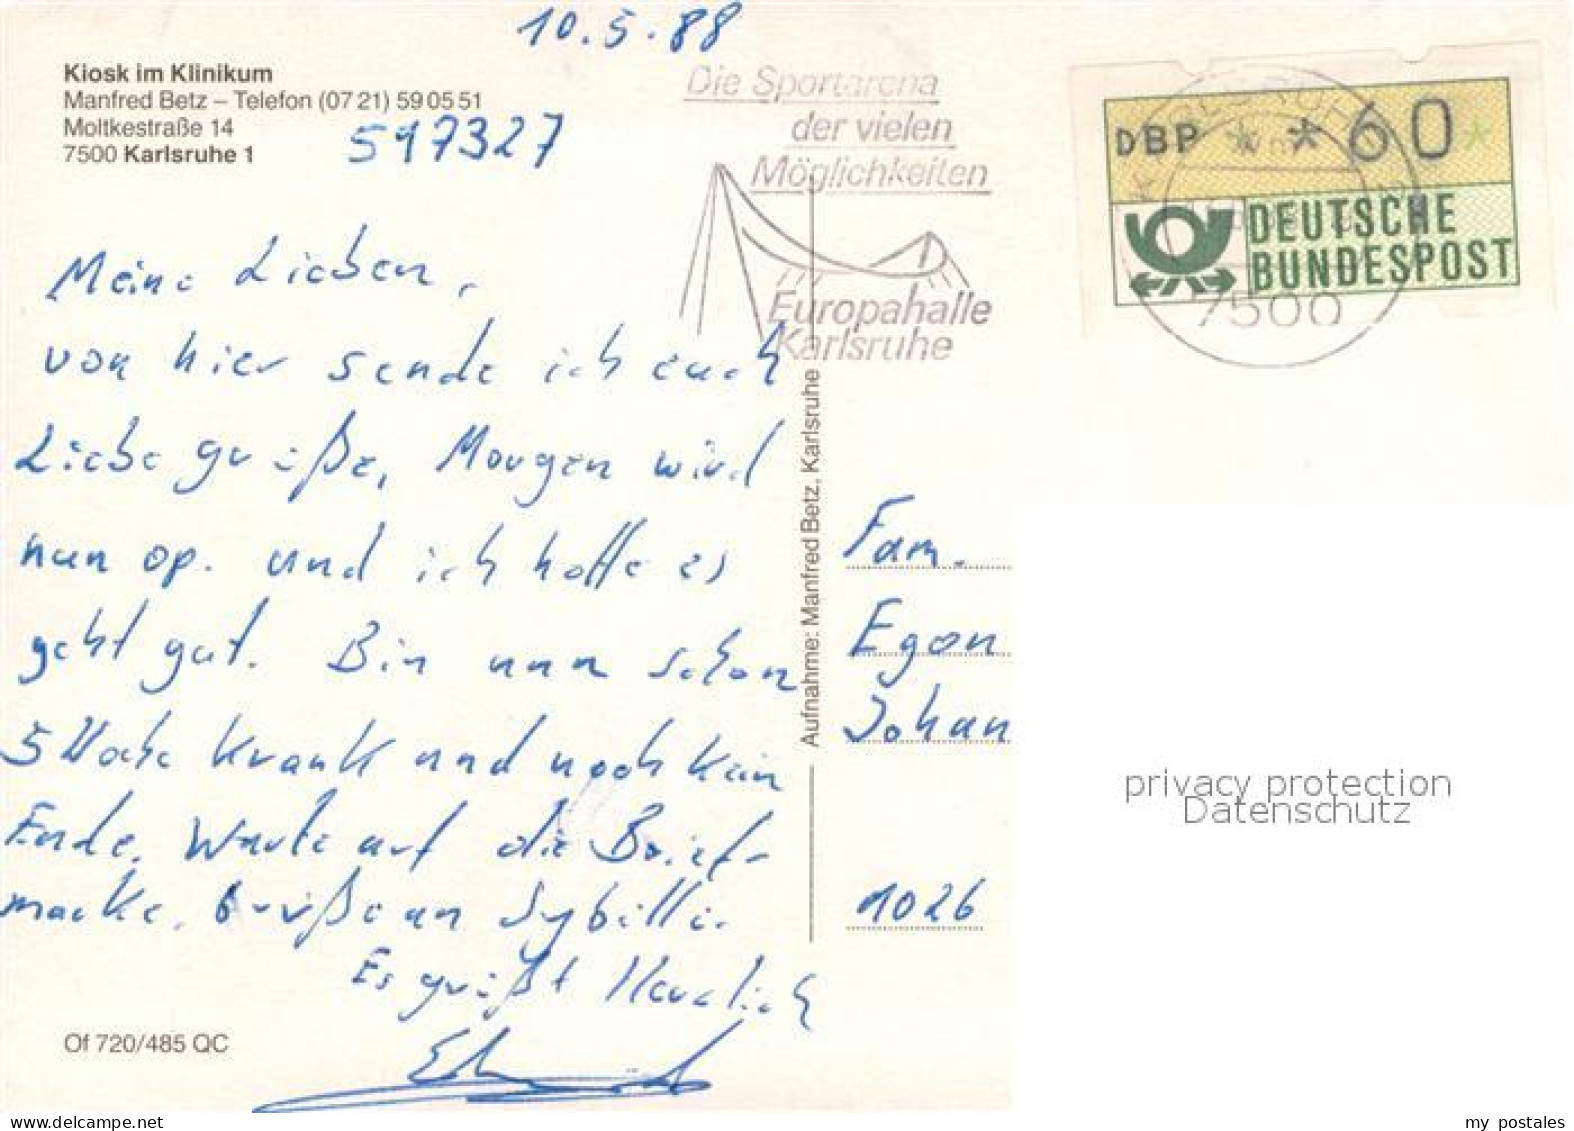 10.5.88
Kiosk im Klinikum
Manfred Betz – Telefon (07 21) 59 05 51
Moltkestraße 14
7500 Karlsruhe 1
597327
Die Sportarena
der vielen
Möglichkeiten
Europahalle
Karlsruhe
DBP * * 60 *
DEUTSCHE
BUNDESPOST
7500
Meine Lieben,
von hier sende ich euch
Liebe grüße, Morgen wird
nun op. und ich hoffe es
geht gut. Bin nun schon
5 Woche Krank und noch Kein
Ende. Warte auf die Brief-
marke. Grüße an Sybille.
Es grüßt Herzlich
Of 720/485 QC
Aufnahme: Manfred Betz, Karlsruhe
Fam.
Egon
Johan
1026
privacy protection
Datenschutz
delcampe.net
my postales